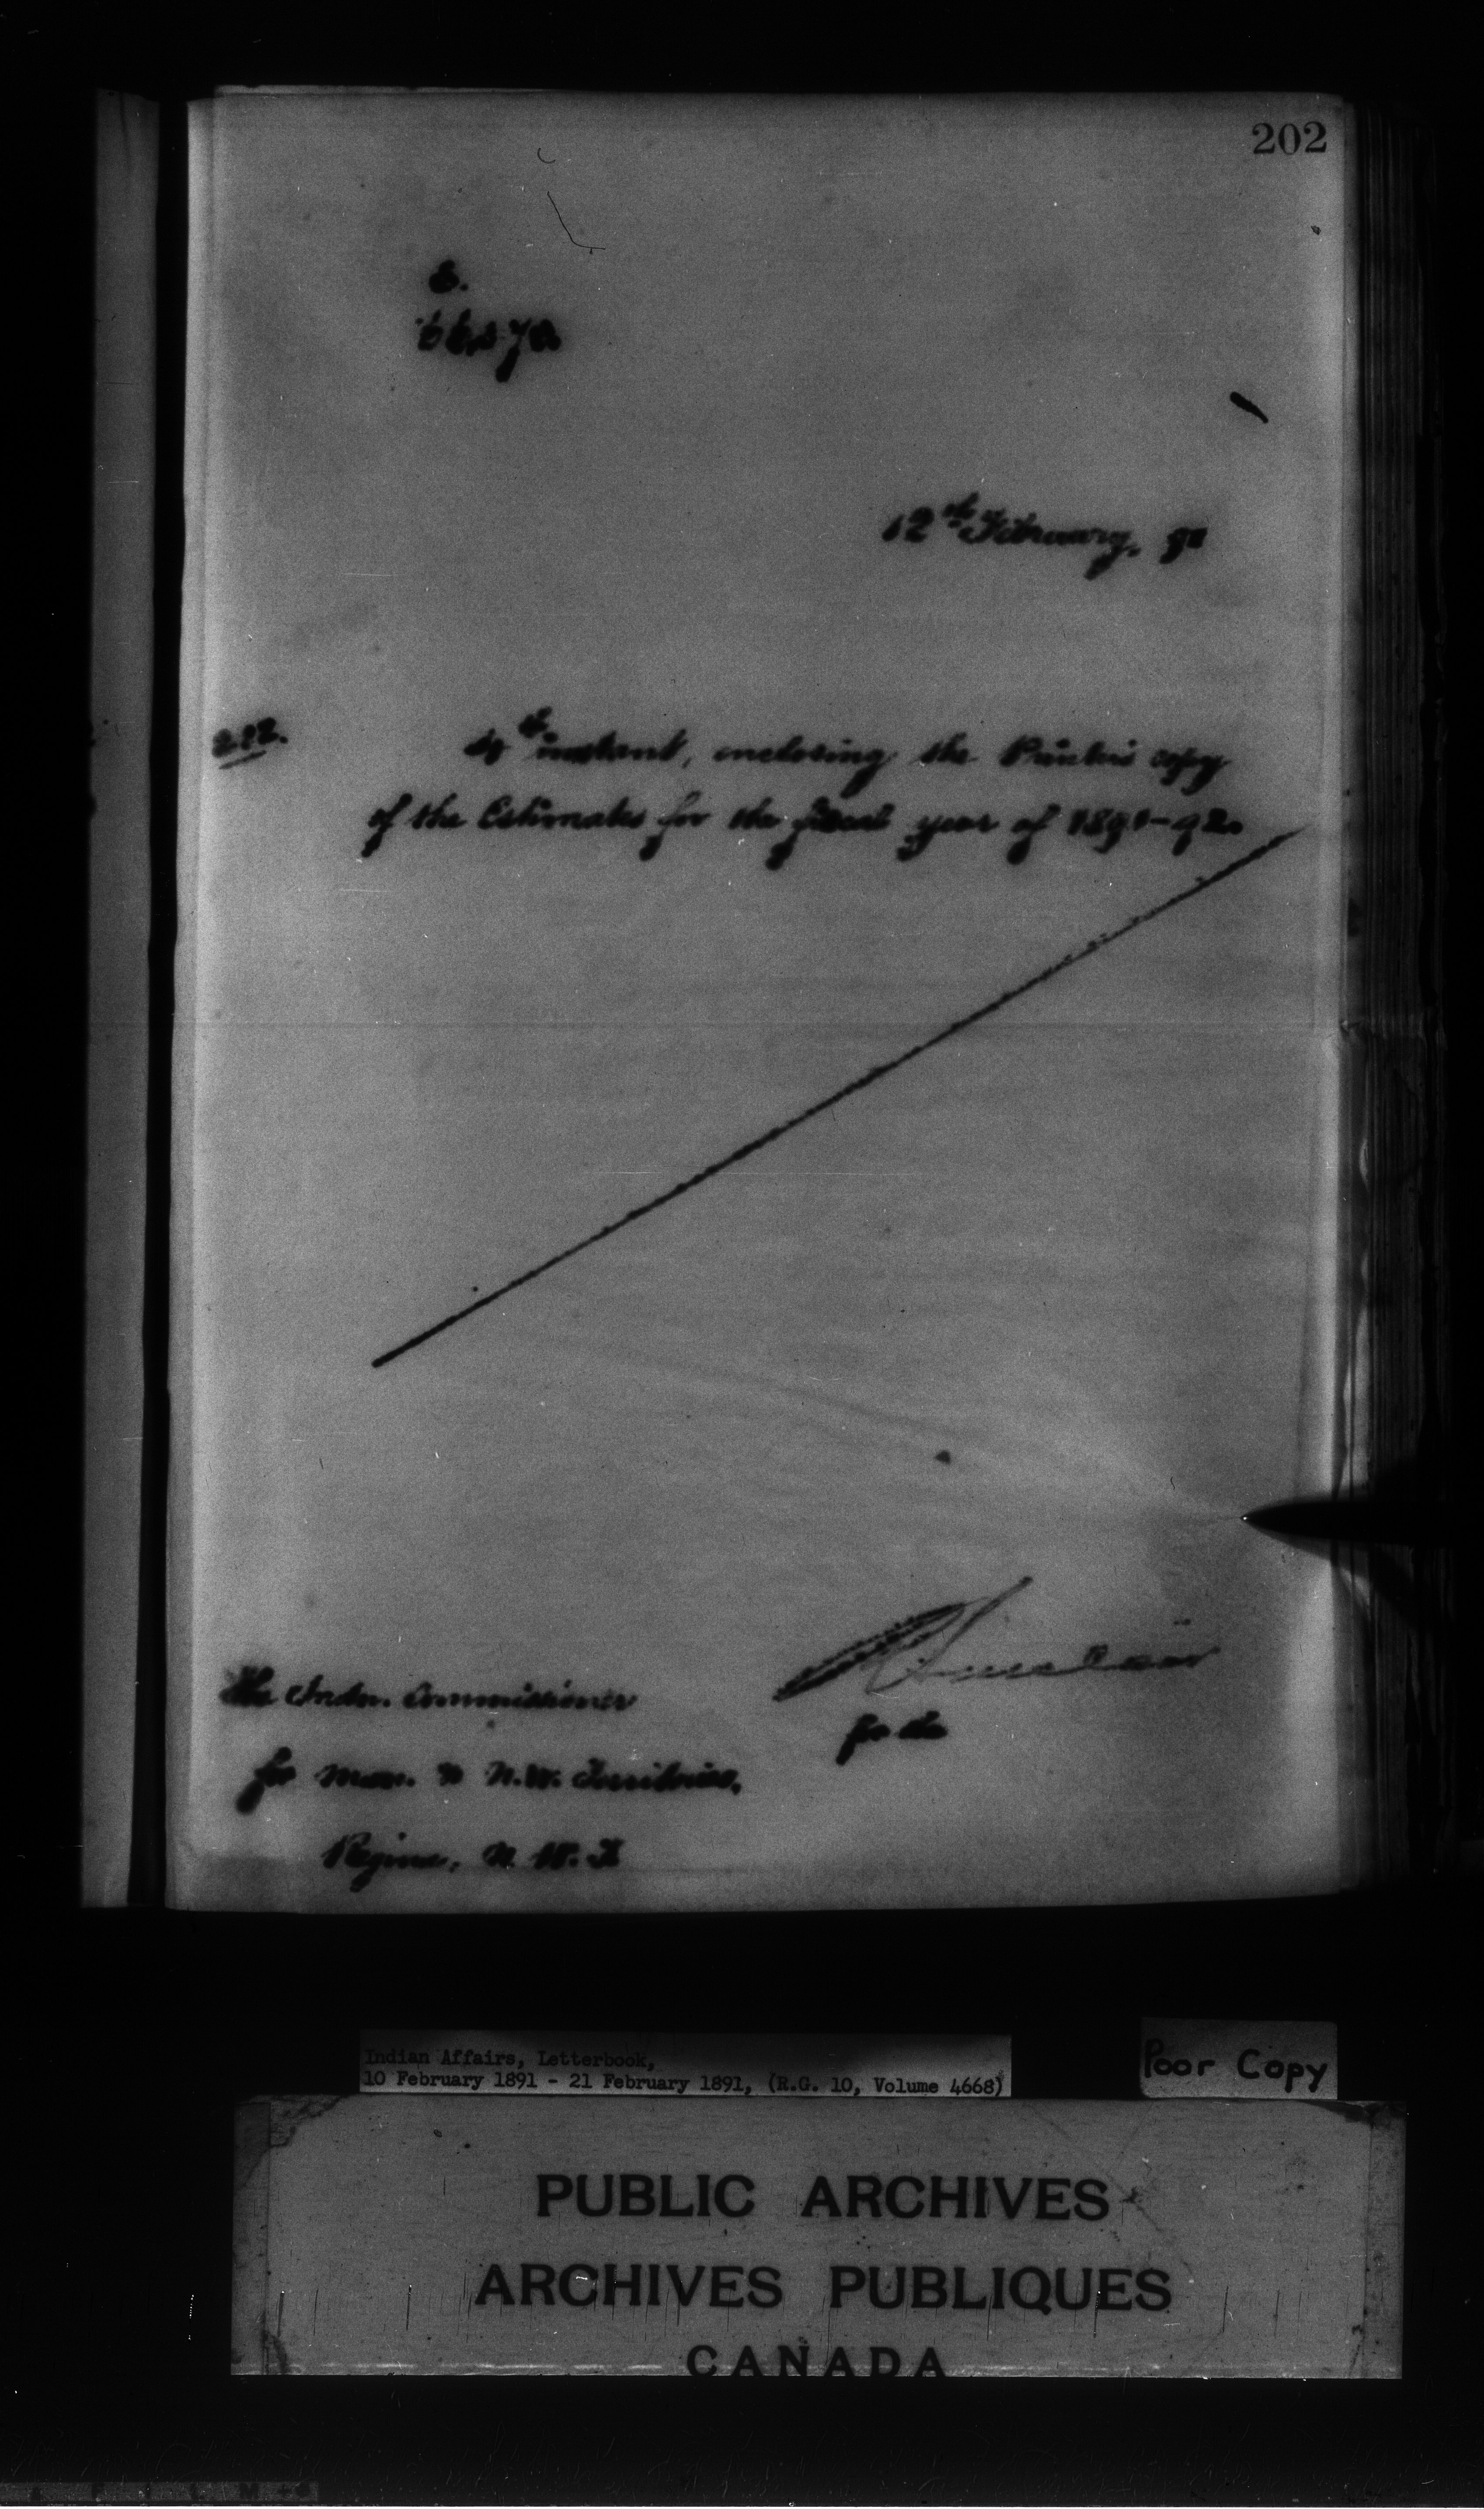 202
12th February, 91
instant, enclosing the Printer's copy
of the Estimates for the fiscal year of 1891-92.
The Indn. Commissioner
for Man. & N.W. Territories,
Regina, N.W.T
Sinclair
for the
Indian Affairs, Letterbook,
10 February 1891 - 21 February 1891, (R.G. 10, Volume 4668)
Poor Copy
PUBLIC ARCHIVES
ARCHIVES PUBLIQUES
CANADA